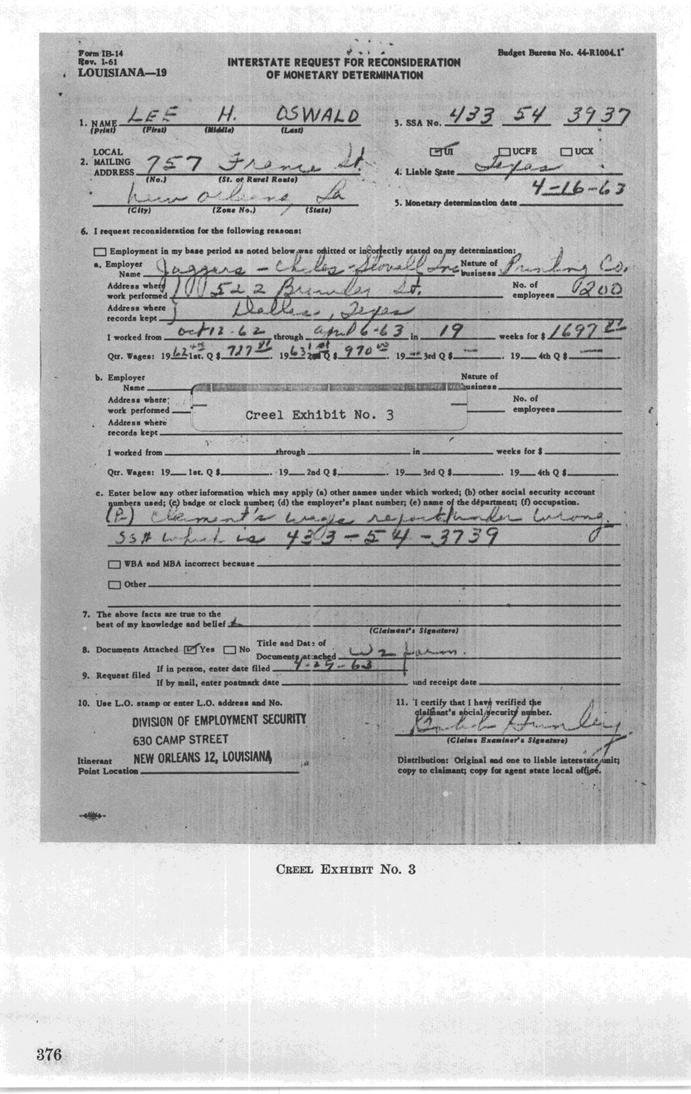 Form IB-14
Rev. 1-61
LOUISIANA—19
INTERSTATE REQUEST FOR RECONSIDERATION
OF MONETARY DETERMINATION
Budget Bureau No. 44-R1004.1
1. NAME LEE H. OSWALD
(Print) (First) (Middle) (Last)
3. SSA No. 433 54 3937
LOCAL
2. MAILING
ADDRESS 757 French St.
(No.) (St. or Rural Route)
New Orleans, La
(City) (Zone No.) (State)
UI UCFE UCX
4. Liable State Texas
5. Monetary determination date 4-16-63
6. I request reconsideration for the following reasons:
Employment in my base period as noted below was omitted or incorrectly stated on my determination:
a. Employer
Name Jaggars - Chiles - Stovall Inc Nature of business Printing Co.
Address where
work performed 522 Browder St. No. of employees 200
Address where
records kept Dallas, Texas
I worked from Oct 12-62 through April 6-63 in 19 weeks for $ 1697
Qtr. Wages: 1962 1st. Q $ 727 . 1963 2nd Q $ 970 . 19 — 3rd Q $ — 19 4th Q $ —
b. Employer
Name Nature of business
Address where
work performed No. of employees
Address where
records kept
Creel Exhibit No. 3
I worked from through in weeks for $
Qtr. Wages: 19 1st. Q $ . 19 2nd Q $ . 19 3rd Q $ . 19 4th Q $
c. Enter below any other information which may apply (a) other names under which worked; (b) other social security account
numbers used; (c) badge or clock number; (d) the employer's plant number; (e) name of the department; (f) occupation.
Claimant's wages report under wrong
SS# which is 433-54-3739
WBA and MBA incorrect because
Other
7. The above facts are true to the
best of my knowledge and belief
(Claimant's Signature)
8. Documents Attached Yes No Title and Date of
Documents attached W2 form
9. Request filed
If in person, enter date filed 4-29-63
If by mail, enter postmark date and receipt date
10. Use L.O. stamp or enter L.O. address and No.
DIVISION OF EMPLOYMENT SECURITY
630 CAMP STREET
NEW ORLEANS 12, LOUISIANA
Itinerant
Point Location
11. I certify that I have verified the
claimant's social security number.
(Claims Examiner's Signature)
Distribution: Original and one to liable interstate unit;
copy to claimant; copy for agent state local office.
CREEL EXHIBIT No. 3
376